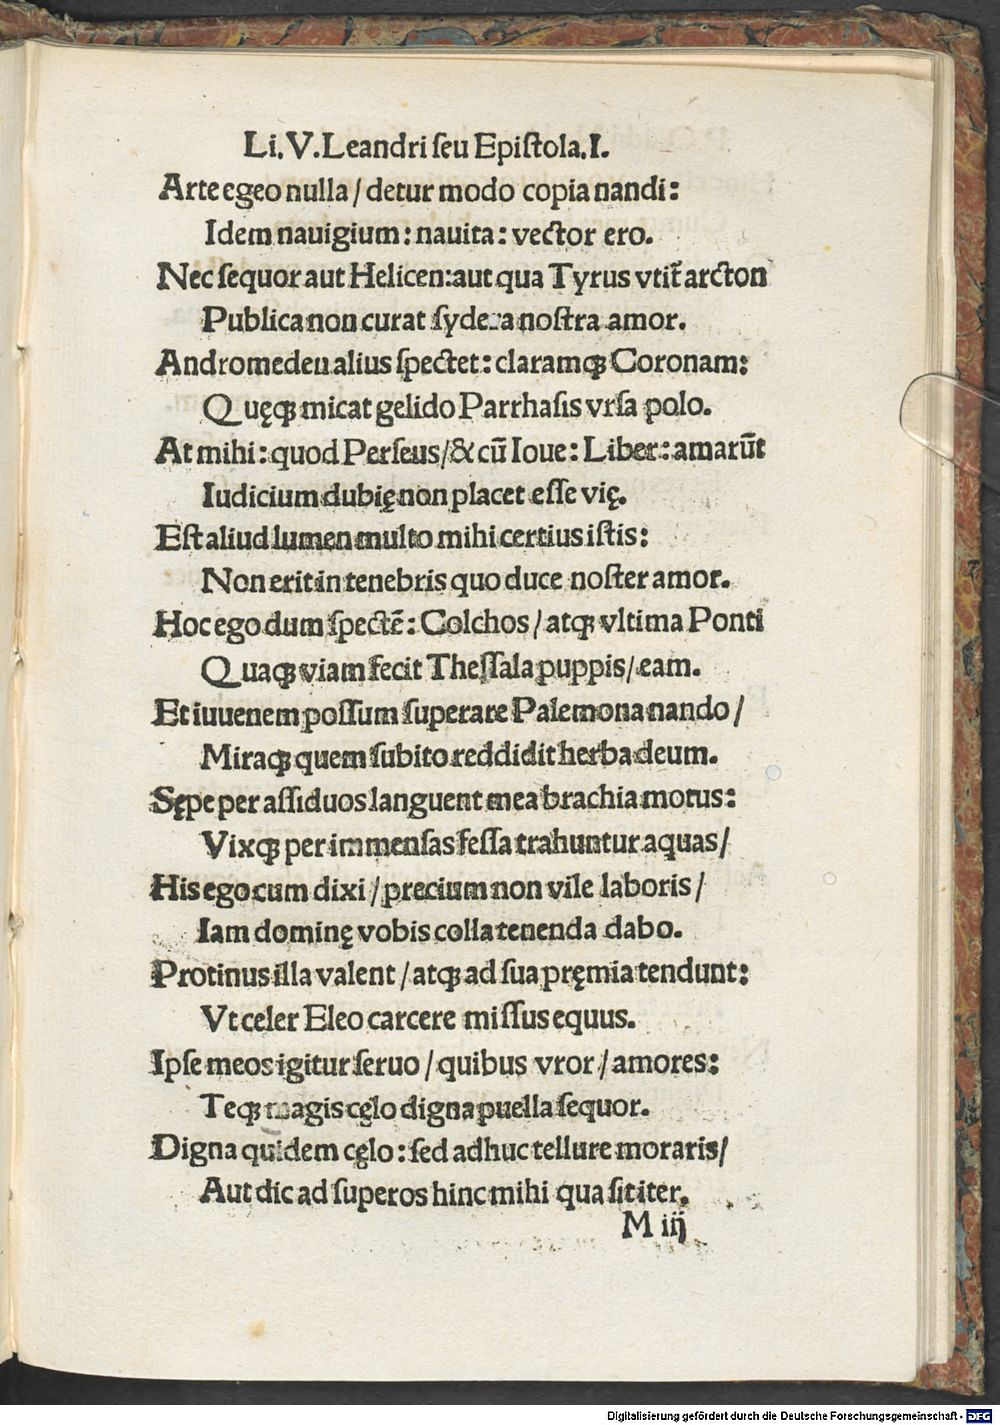 Li. V. Leandri ſeu Epiſtola. I.
Arte egeo nulla / detur modo copia nandi:
Idem nauigium: nauita: vector ero.
Nec ſequor aut Helicen: aut qua Tyrus vtit̃ arcton
Publica non curat ſydera noſtra amor.
Andromeden alius ſpectet: claramq̃ Coronam:
Quęq̃ micat gelido Parrhaſis vrſa polo.
At mihi: quod Perſeus / & cū Ioue: Liber: amarūt
Iudicium dubię non placet eſſe vię.
Eſt aliud lumen multo mihi certius iſtis:
Non erit in tenebris quo duce noſter amor.
Hoc ego dum ſpectē: Colchos / atq̃ vltima Ponti
Quaq̃ viam fecit Theſſala puppis / eam.
Et iuuenem poſſum ſuperare Palemona nando /
Miraq̃ quem ſubito reddidit herba deum.
Sępe per aſſiduos languent mea brachia motus:
Vixq̃ per immenſas feſſa trahuntur aquas /
His ego cum dixi / precium non vile laboris /
Iam dominę vobis colla tenenda dabo.
Protinus illa valent / atq̃ ad ſua pręmia tendunt:
Vt celer Eleo carcere miſſus equus.
Ipſe meos igitur ſeruo / quibus vror / amores:
Teq̃ magis cęlo digna puella ſequor.
Digna quidem cęlo: ſed adhuc tellure moraris /
Aut dic ad ſuperos hinc mihi qua ſit iter.
M iij
Digitalisierung gefördert durch die Deutsche Forschungsgemeinschaft - DFG